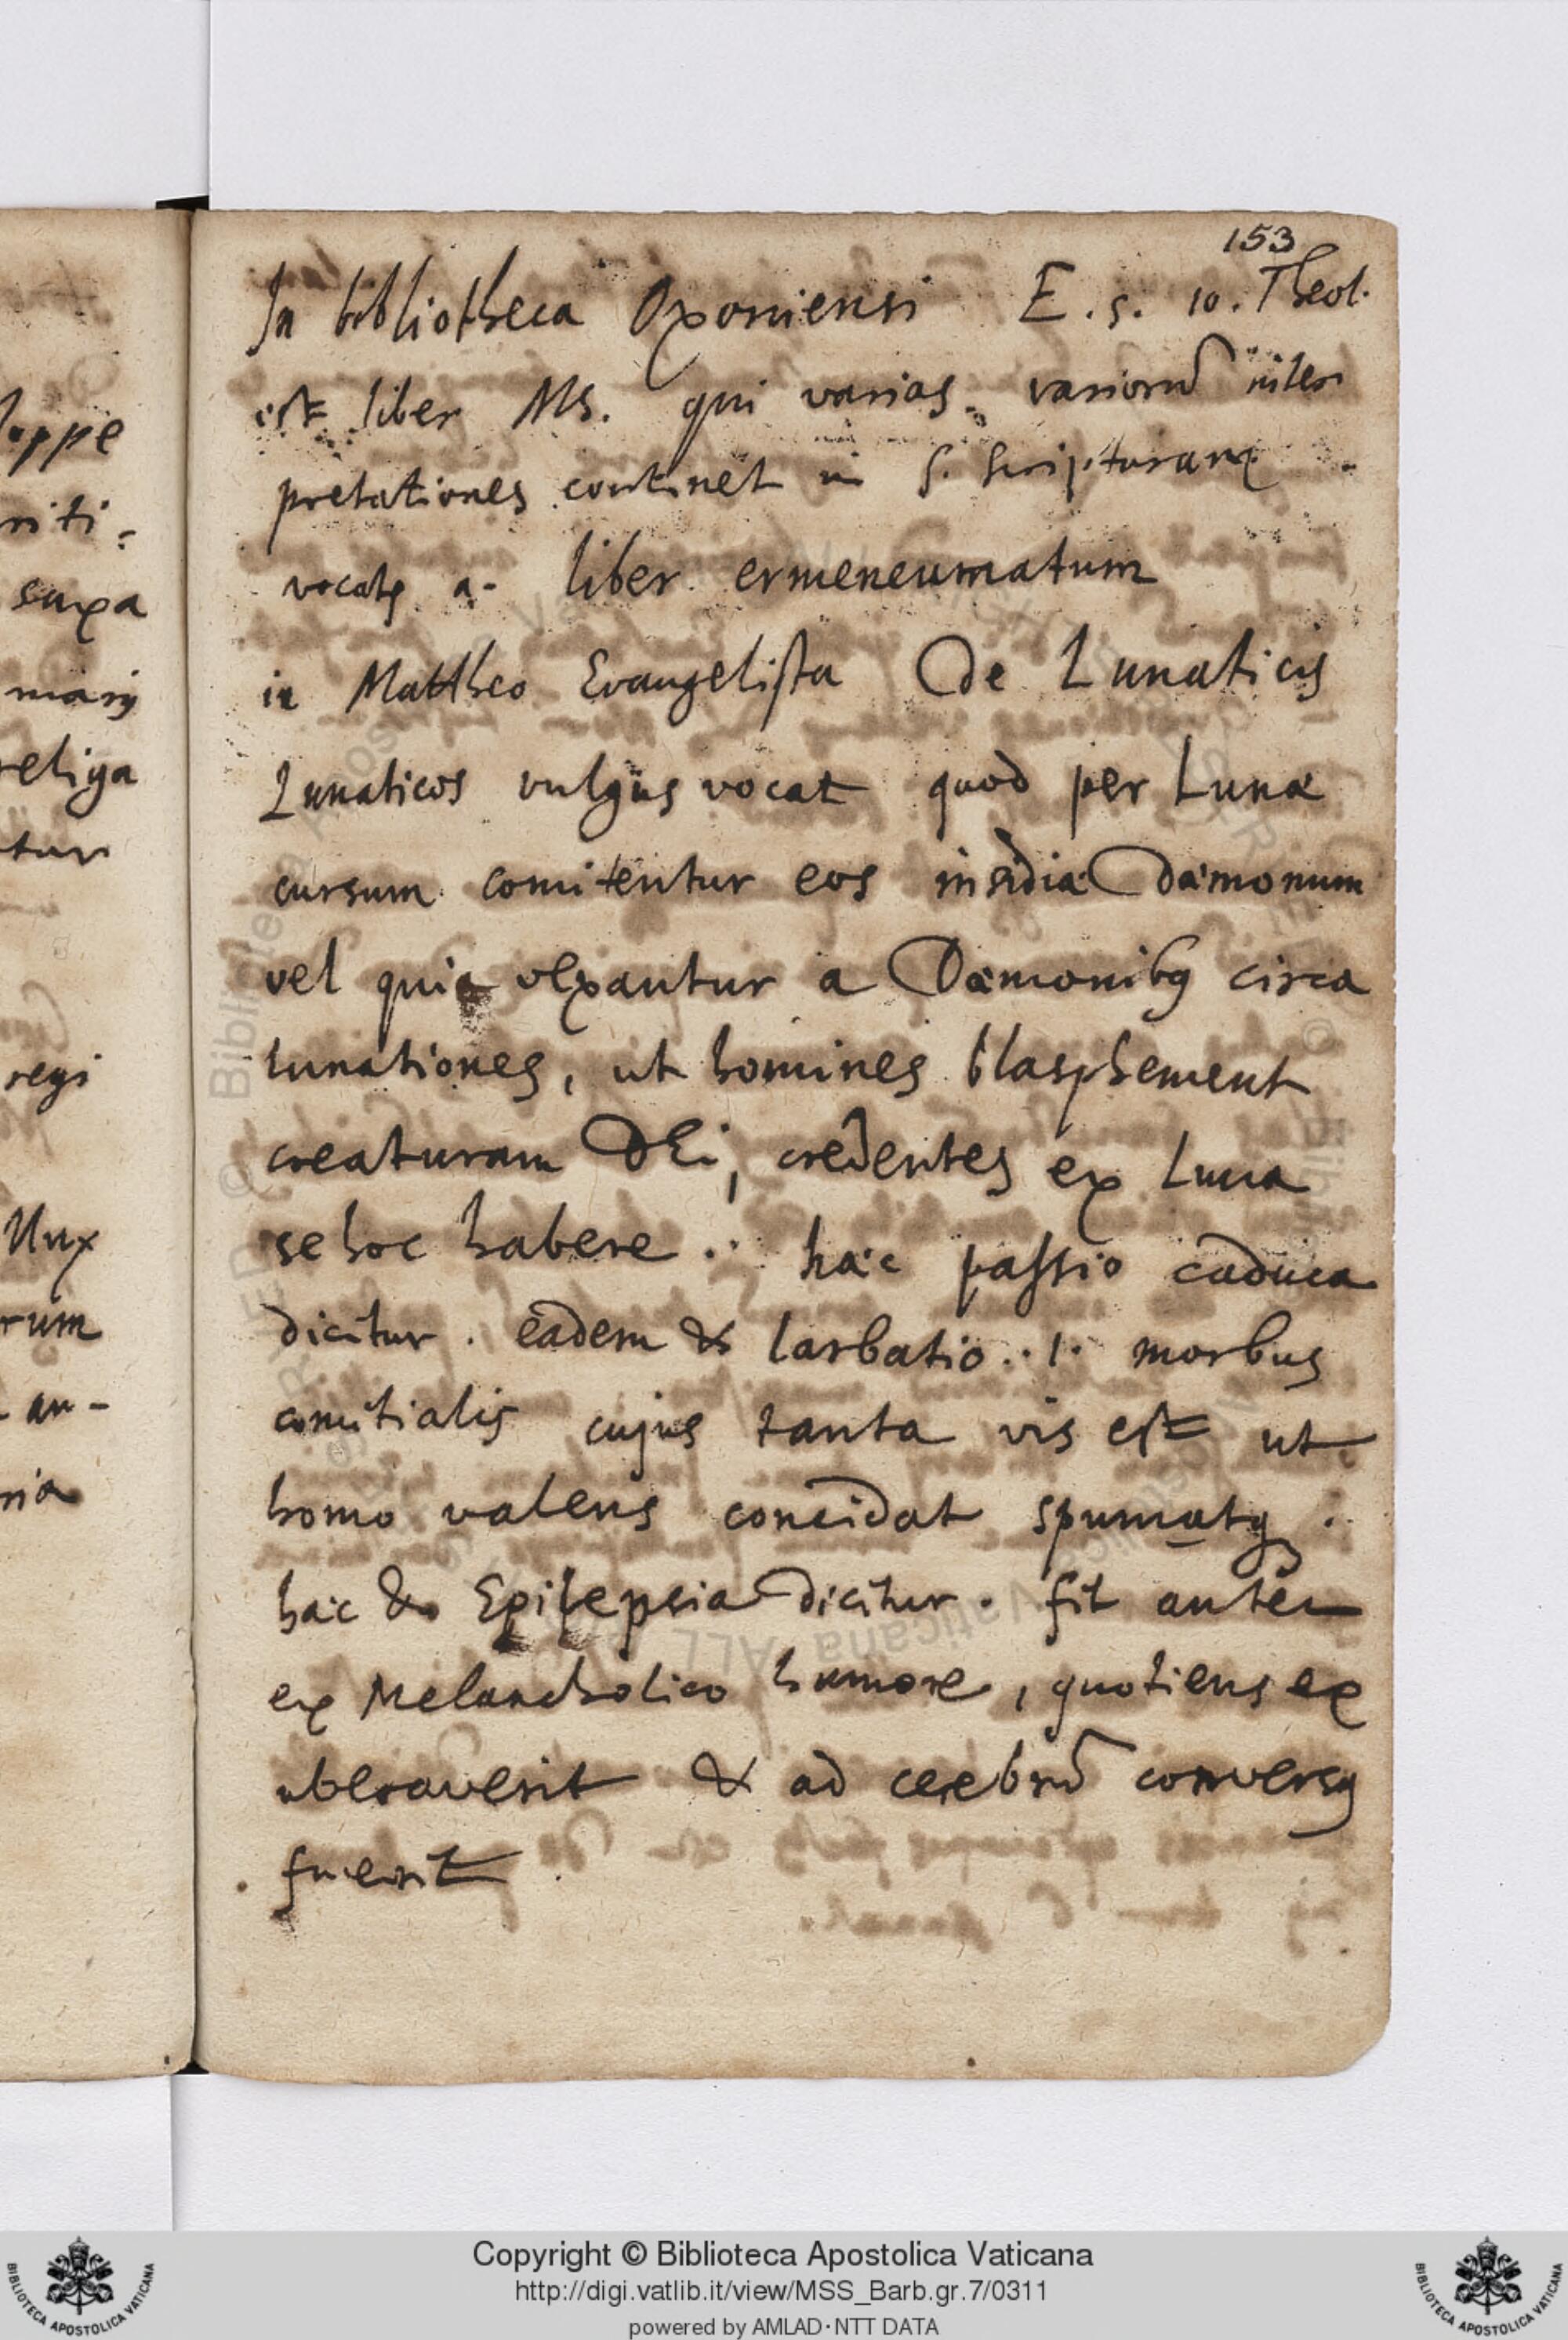 153
In bibliotheca Oxoniensi E. 5. 10. Theol.
est liber Ms. qui varias variorũ inter
pretationes continet in S. Scripturam
vocatꝰ a- liber ermeneumatum
in Mattheo Evangelista De Lunaticis
Lunaticos vulgus vocat quod per Lunæ
cursum comitentur eos insidiæ Dæmonum
vel quia vexantur a Dæmonibꝰ circa
lunationes, ut homines blasphement
creaturam DEi, credentes ex Luna
se hoc habere . hæc passio caduca
dicitur . eadem & larbatio . 1. morbus
comitialis cujus tanta vis est ut
homo valens concidat spumatq .
hæc & Epilepsia dicitur . fit autem
ex Melancholico humore , quotiens ex
uberaverit & ad cerebrũ conversꝰ
fuerit
loppe
riti-
saxa
religa
tur
regi
rum
an-
ria
Copyright © Biblioteca Apostolica Vaticana
http://digi.vatlib.it/view/MSS_Barb.gr.7/0311
powered by AMLAD·NTT DATA
BIBLIOTECA APOSTOLICA VATICANA
BIBLIOTECA APOSTOLICA VATICANA